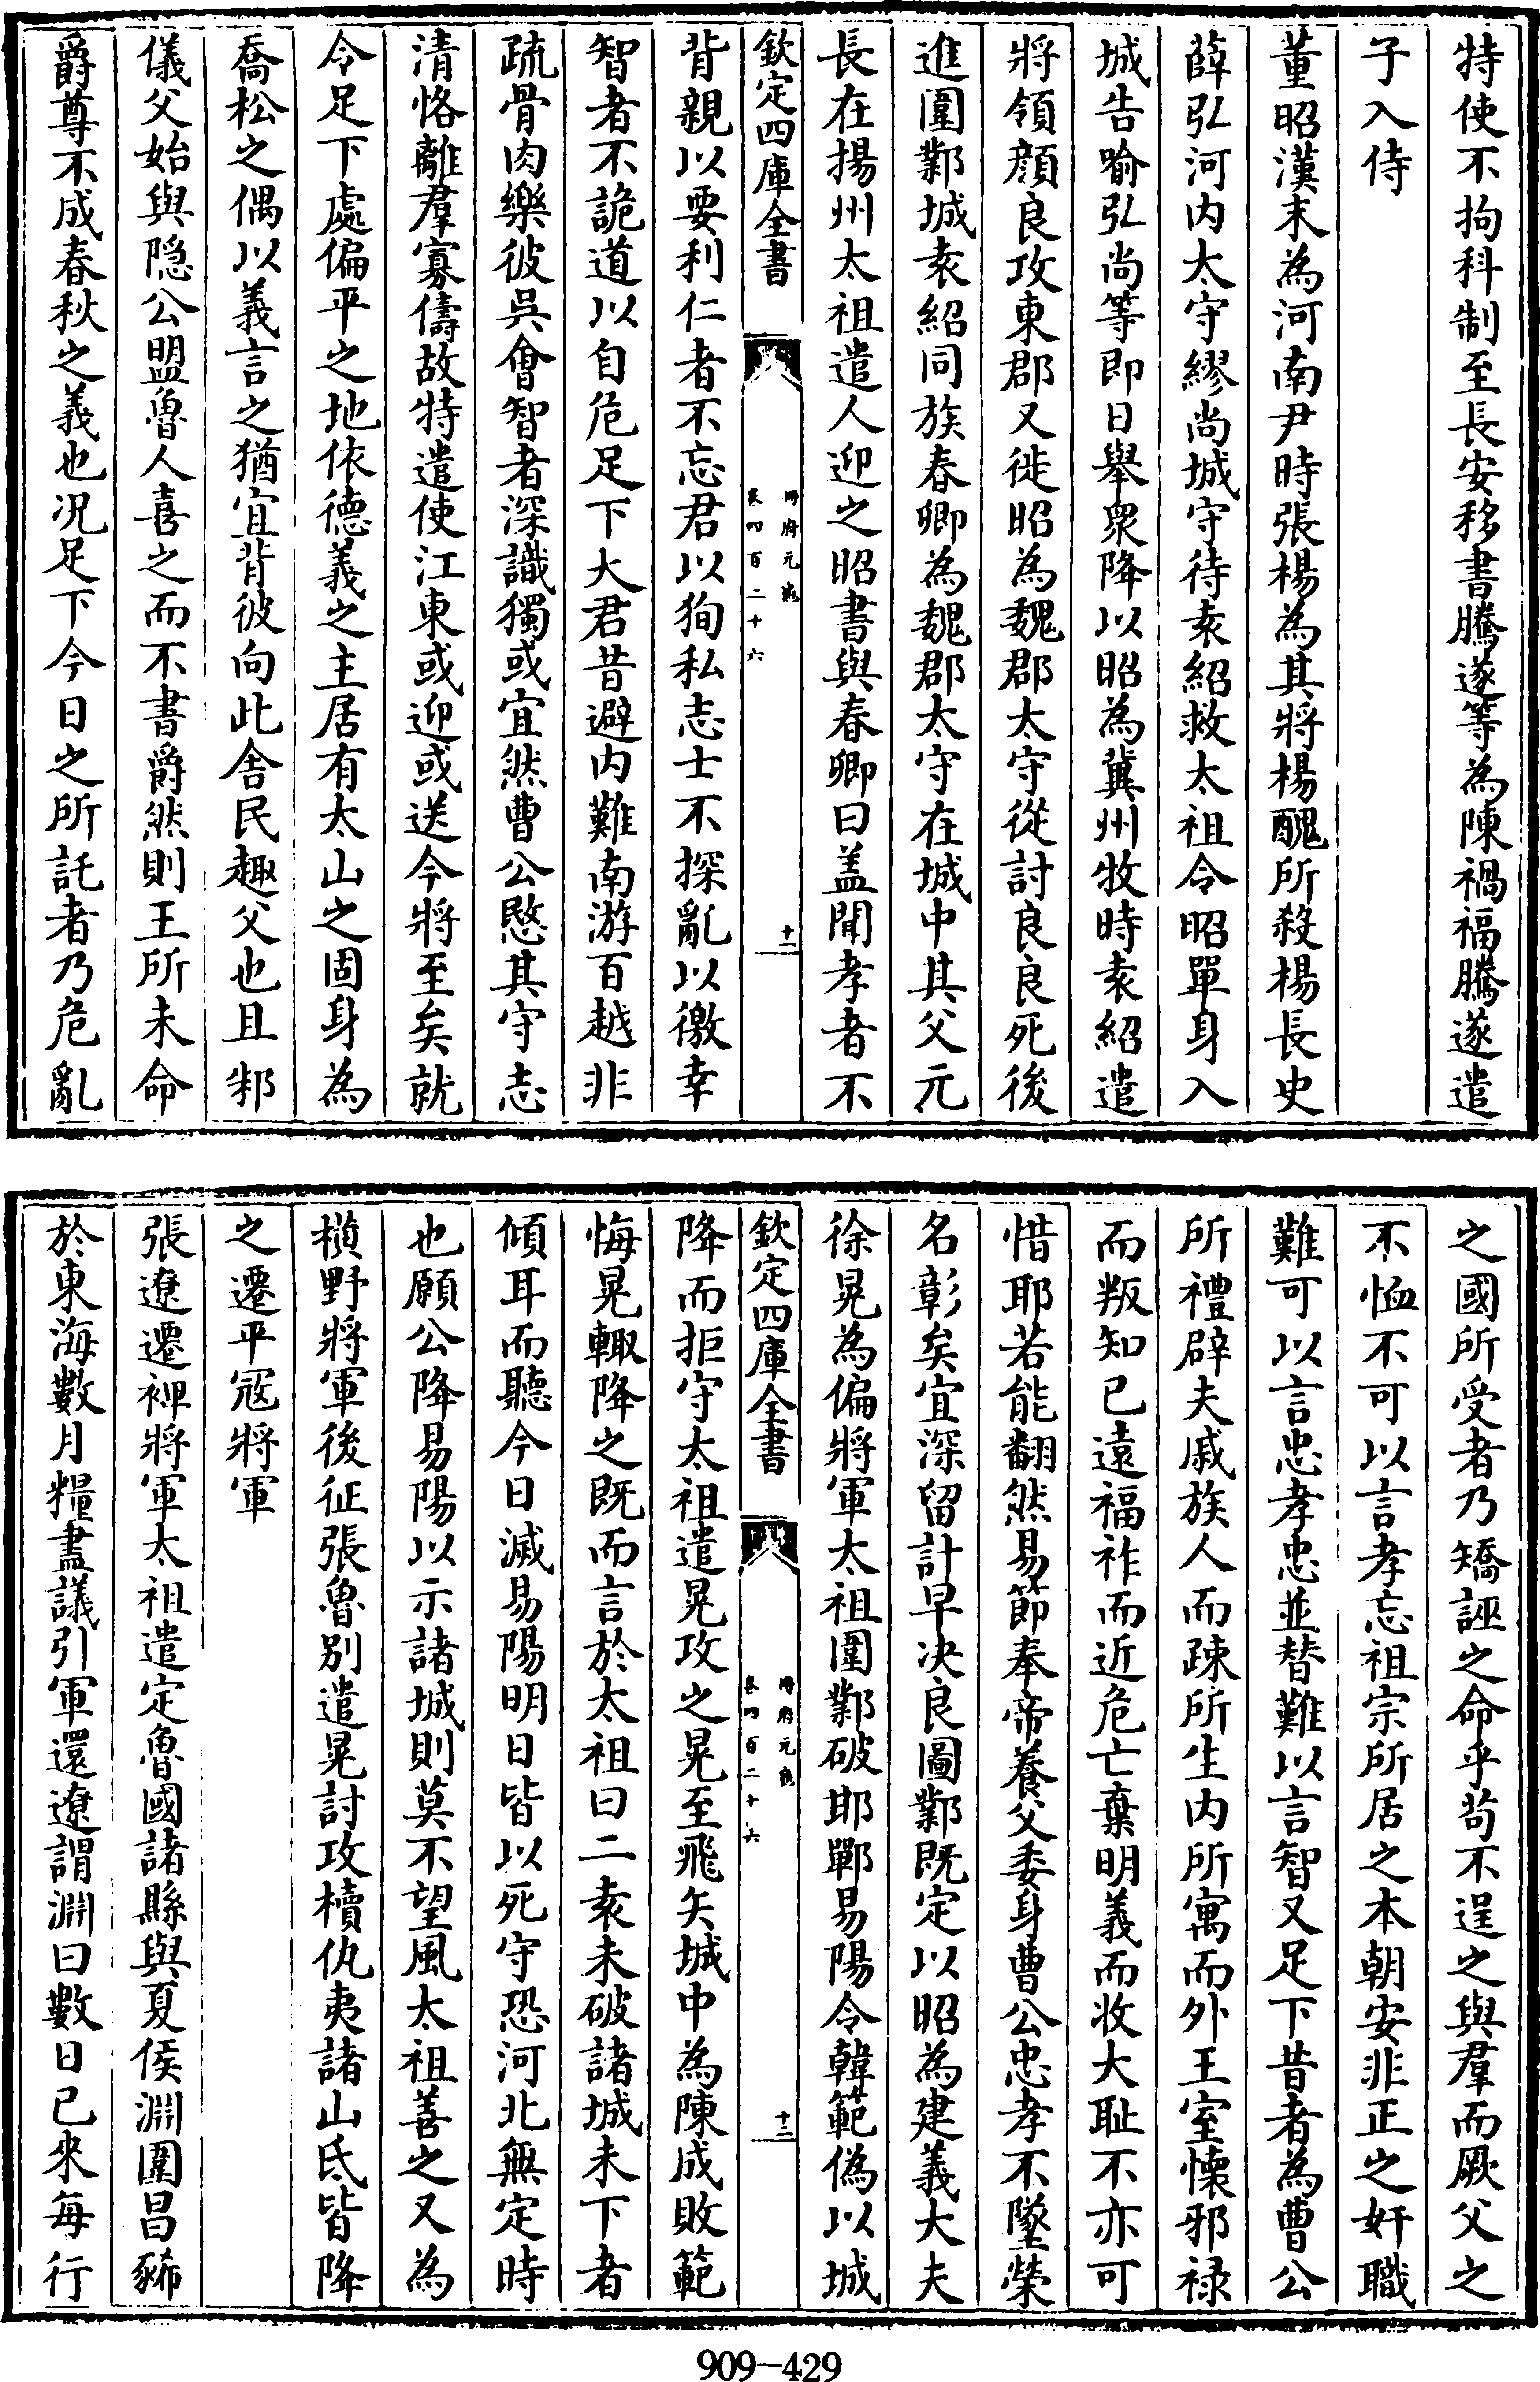 特使不拘科制至長安移書騰遂等為陳禍福騰遂遣
子入侍
董昭漢末為河南尹時張楊為其將楊醜所殺楊長史
薛弘河内太守繆尚城守待袁紹救太祖令昭單身入
城告喻弘尚等即日舉衆降以昭為冀州牧時袁紹遣
將領顔良攻東郡又徙昭為魏郡太守從討良良死後
進圍鄴城袁紹同族春卿為魏郡太守在城中其父元
長在揚州太祖遣人迎之昭書與春卿曰盖聞孝者不
欽定四庫全書
冊府元龜
卷四百二十六
十二
背親以要利仁者不忘君以狥私志士不探亂以徼幸
智者不詭道以自危足下大君昔避内難南游百越非
疏骨肉樂彼吳會智者深識獨或宜然曹公愍其守志
清恪離羣寡儔故特遣使江東或迎或送今將至矣就
令足下處偏平之地依德義之主居有太山之固身為
喬松之偶以義言之猶宜背彼向此舍民趣父也且邾
儀父始與隠公盟魯人喜之而不書爵然則王所未命
爵尊不成春秋之義也况足下今日之所託者乃危亂
之國所受者乃矯誣之命乎苟不逞之與羣而厥父之
不恤不可以言孝忘祖宗所居之本朝安非正之奸職
難可以言忠孝忠並替難以言智又足下昔者為曹公
所禮辟夫戚族人而疎所生内所寓而外王室懷邪禄
而叛知已遠福祚而近危亡棄明義而收大耻不亦可
惜耶若能翻然易節奉帝養父委身曹公忠孝不墜榮
名彰矣宜深留計早决良圖鄴既定以昭為建義大夫
徐晃為偏將軍太祖圍鄴破邯鄲易陽令韓範偽以城
欽定四庫全書
冊府元龜
卷四百二十六
十三
降而拒守太祖遣晃攻之晃至飛矢城中為陳成敗範
悔晃輙降之既而言於太祖曰二袁未破諸城未下者
傾耳而聽今日滅易陽明日皆以死守恐河北無定時
也願公降易陽以示諸城則莫不望風太祖善之又為
横野將軍後征張魯別遣晃討攻櫝仇夷諸山氐皆降
之遷平冦將軍
張遼遷裨將軍太祖遣定魯國諸縣與夏侯淵圍昌豨
於東海數月糧盡議引軍還遼謂淵曰數日已來每行
909-429